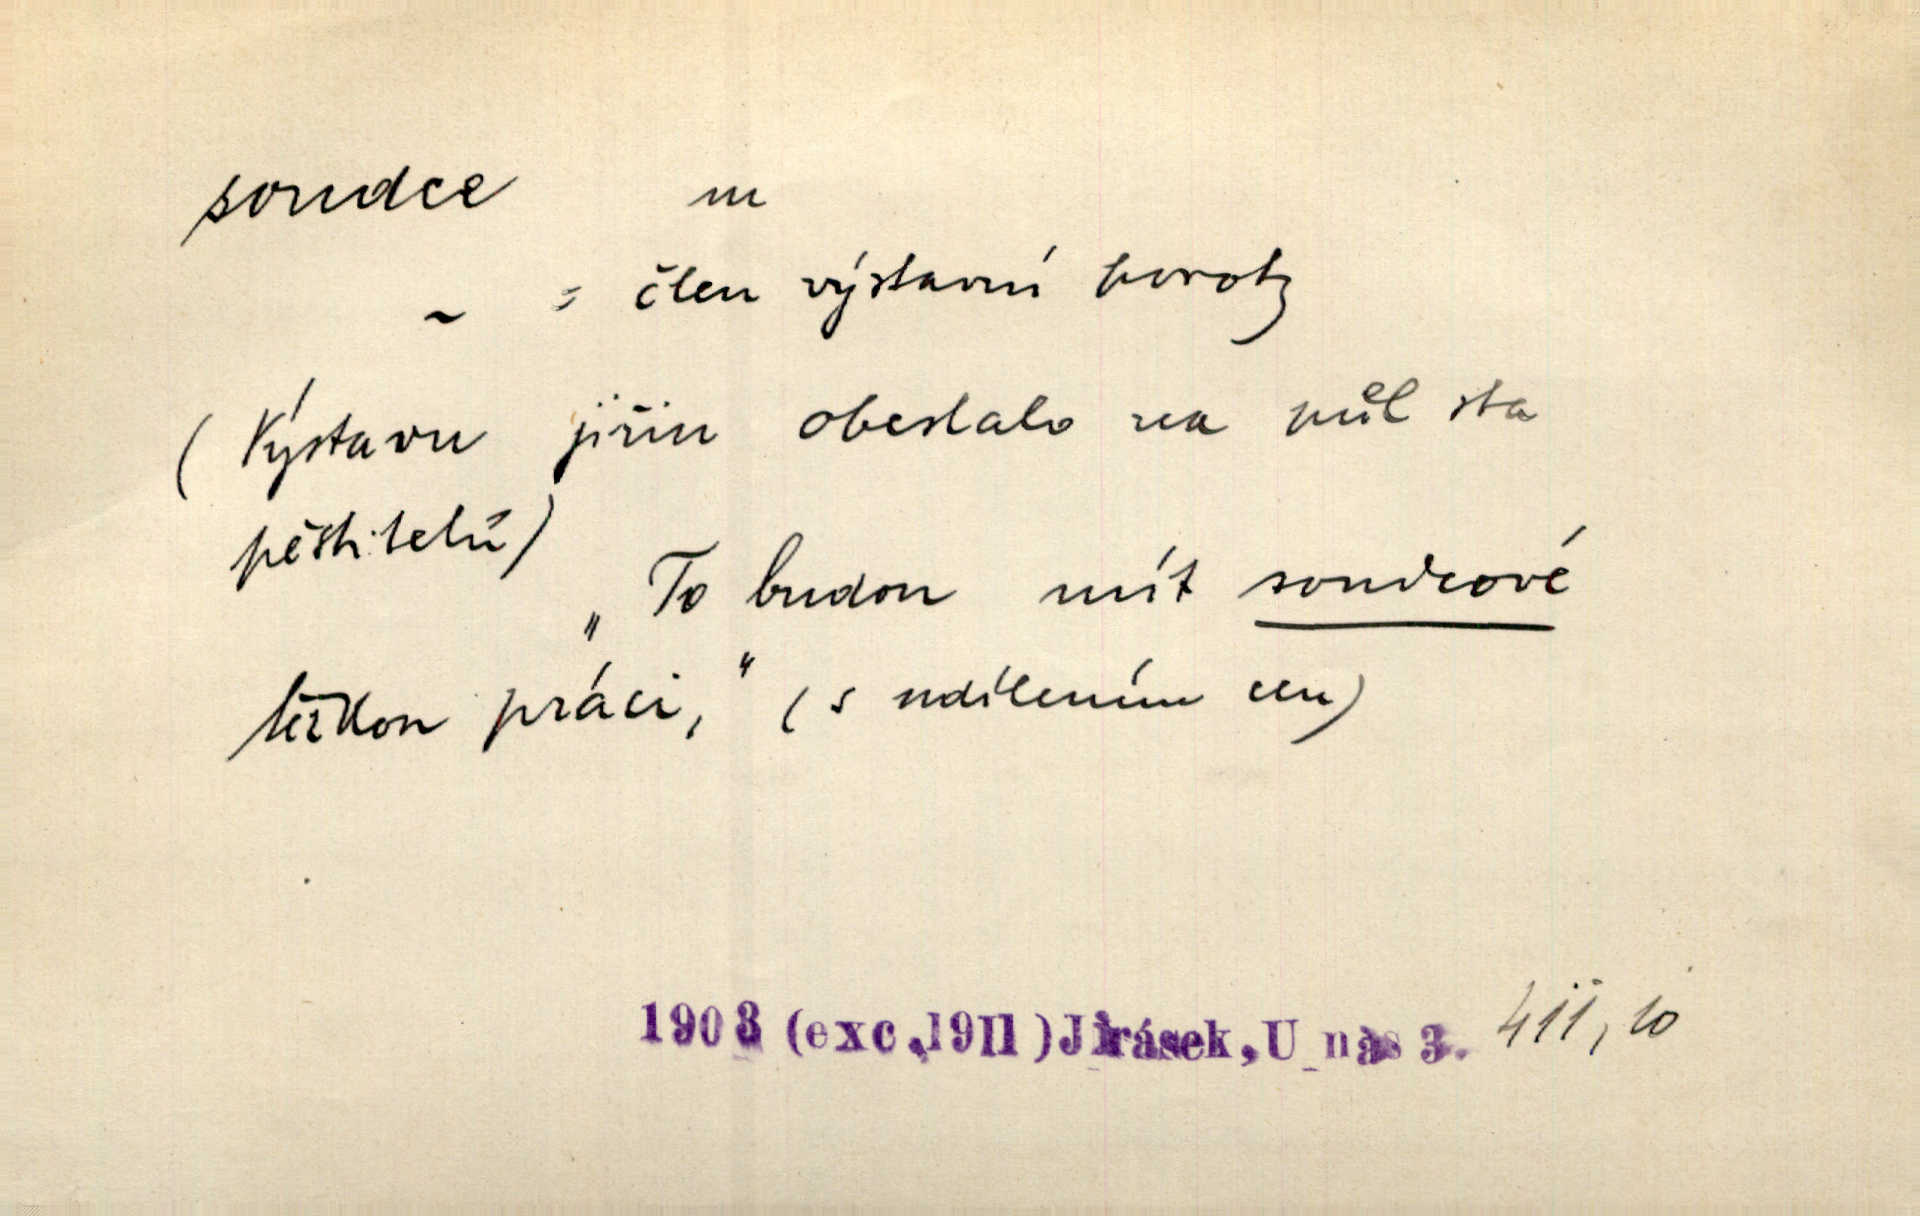 soudce m
~ = člen výstavní poroty
(Výstavu jiřin obeslalo na půl sta
pěstitelů)
„To budou mít soudcové
těžkou práci,“ (s udílením cen)
1903 (exc. 1911) Jirásek, U nás 3. 411, 10